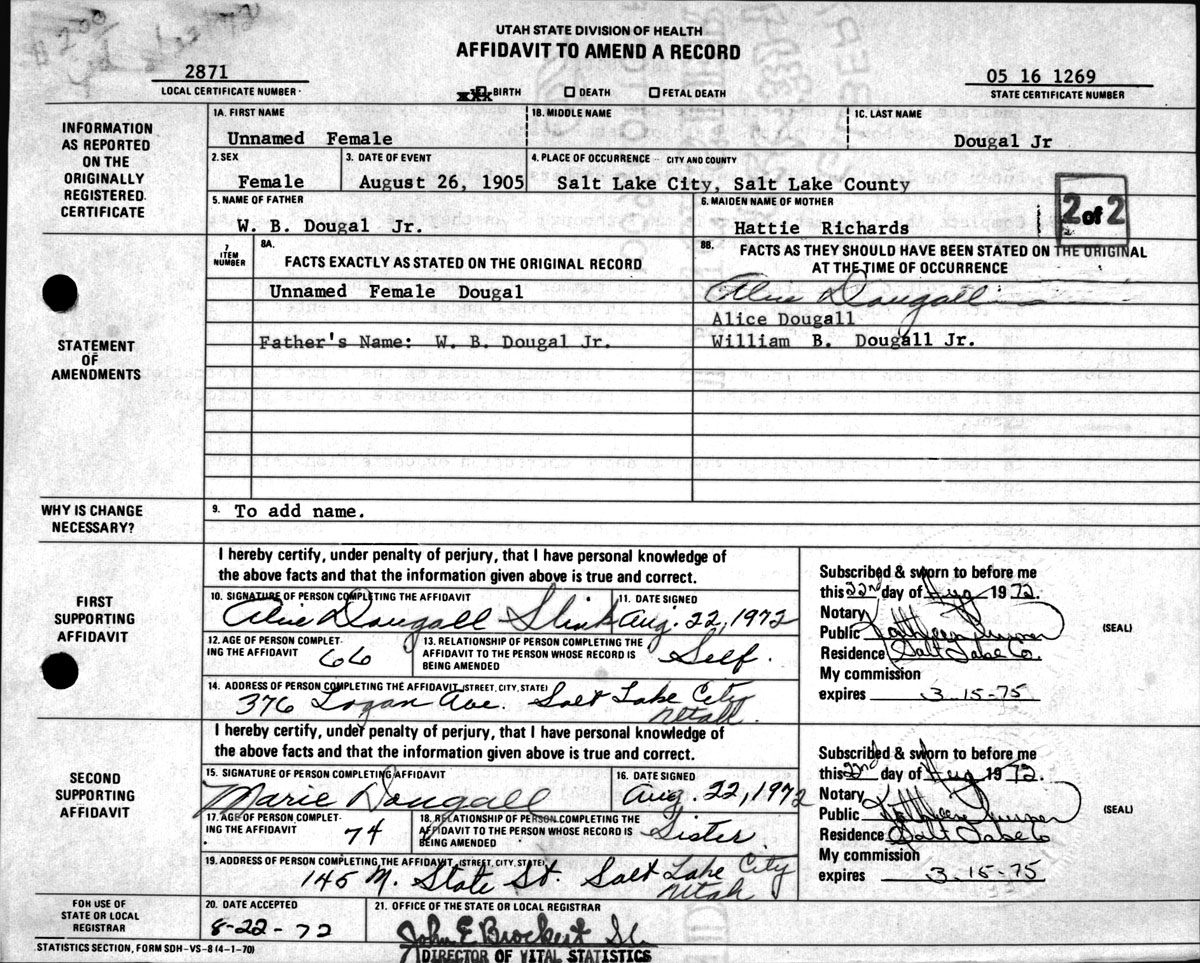 UTAH STATE DIVISION OF HEALTH
AFFIDAVIT TO AMEND A RECORD
2871
LOCAL CERTIFICATE NUMBER
xxx BIRTH DEATH FETAL DEATH
05 16 1269
STATE CERTIFICATE NUMBER
INFORMATION
AS REPORTED
ON THE
ORIGINALLY
REGISTERED
CERTIFICATE
1A. FIRST NAME 1B. MIDDLE NAME 1C. LAST NAME
Unnamed Female Dougal Jr
2. SEX 3. DATE OF EVENT 4. PLACE OF OCCURRENCE - CITY AND COUNTY
Female August 26, 1905 Salt Lake City, Salt Lake County
5. NAME OF FATHER 6. MAIDEN NAME OF MOTHER
W. B. Dougal Jr. Hattie Richards
2 of 2
STATEMENT
OF
AMENDMENTS
7
ITEM
NUMBER
8A.
FACTS EXACTLY AS STATED ON THE ORIGINAL RECORD
8B. FACTS AS THEY SHOULD HAVE BEEN STATED ON THE ORIGINAL
AT THE TIME OF OCCURRENCE
Unnamed Female Dougal
Alice Dougall
Alice Dougall
Father's Name: W. B. Dougal Jr. William B. Dougall Jr.
WHY IS CHANGE
NECESSARY?
9. To add name.
FIRST
SUPPORTING
AFFIDAVIT
I hereby certify, under penalty of perjury, that I have personal knowledge of
the above facts and that the information given above is true and correct.
10. SIGNATURE OF PERSON COMPLETING THE AFFIDAVIT 11. DATE SIGNED
Alice Dougall Aug. 22, 1972
12. AGE OF PERSON COMPLET-
ING THE AFFIDAVIT 66
13. RELATIONSHIP OF PERSON COMPLETING THE
AFFIDAVIT TO THE PERSON WHOSE RECORD IS
BEING AMENDED Self.
14. ADDRESS OF PERSON COMPLETING THE AFFIDAVIT (STREET, CITY, STATE)
376 Logan Ave. Salt Lake City
Utah.
Subscribed & sworn to before me
this 22nd day of Aug 1972.
Notary
Public Kathleen
Residence Salt Lake Co.
My commission
expires 3-15-75
(SEAL)
SECOND
SUPPORTING
AFFIDAVIT
I hereby certify, under penalty of perjury, that I have personal knowledge of
the above facts and that the information given above is true and correct.
15. SIGNATURE OF PERSON COMPLETING AFFIDAVIT 16. DATE SIGNED
Marie Dougall Aug. 22, 1972
17. AGE OF PERSON COMPLET-
ING THE AFFIDAVIT 74
18. RELATIONSHIP OF PERSON COMPLETING THE
AFFIDAVIT TO THE PERSON WHOSE RECORD IS
BEING AMENDED Sister
19. ADDRESS OF PERSON COMPLETING THE AFFIDAVIT (STREET, CITY, STATE)
145 N. State St. Salt Lake City
Utah
Subscribed & sworn to before me
this 22nd day of Aug 1972.
Notary
Public Kathleen
Residence Salt Lake Co
My commission
expires 3-15-75
(SEAL)
FOR USE OF
STATE OR LOCAL
REGISTRAR
20. DATE ACCEPTED 21. OFFICE OF THE STATE OR LOCAL REGISTRAR
8-22-72 John E Brockert
DIRECTOR OF VITAL STATISTICS
STATISTICS SECTION, FORM SDH-VS-8 (4-1-70)